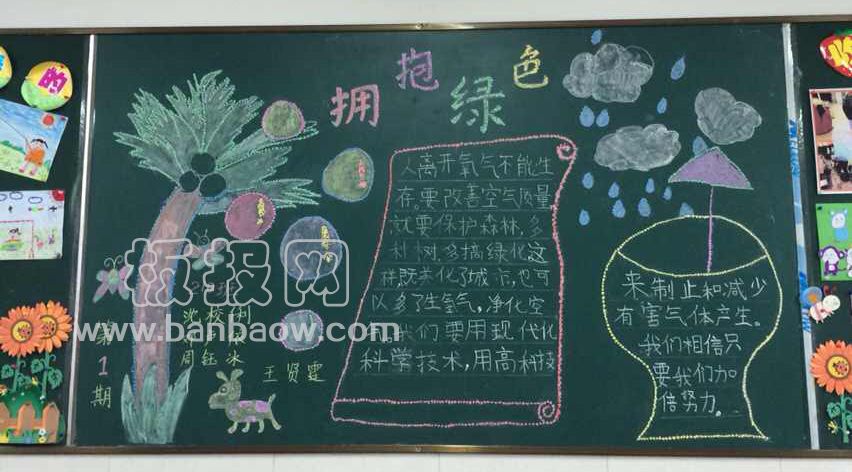 拥抱绿色
人离开氧气不能生
存。要改善空气质量
就要保护森林,多
树,多搞绿化这
样既美化了城市,也可
以多了生氢气,净化空
我们要用现代化
科学技术,用高科技
来制止和减少
有害气体产生。
我们相信只
要我们加
倍努力。
第1期
沈
周钰冰
王贤雯
板报网
www.banbaow.com
的